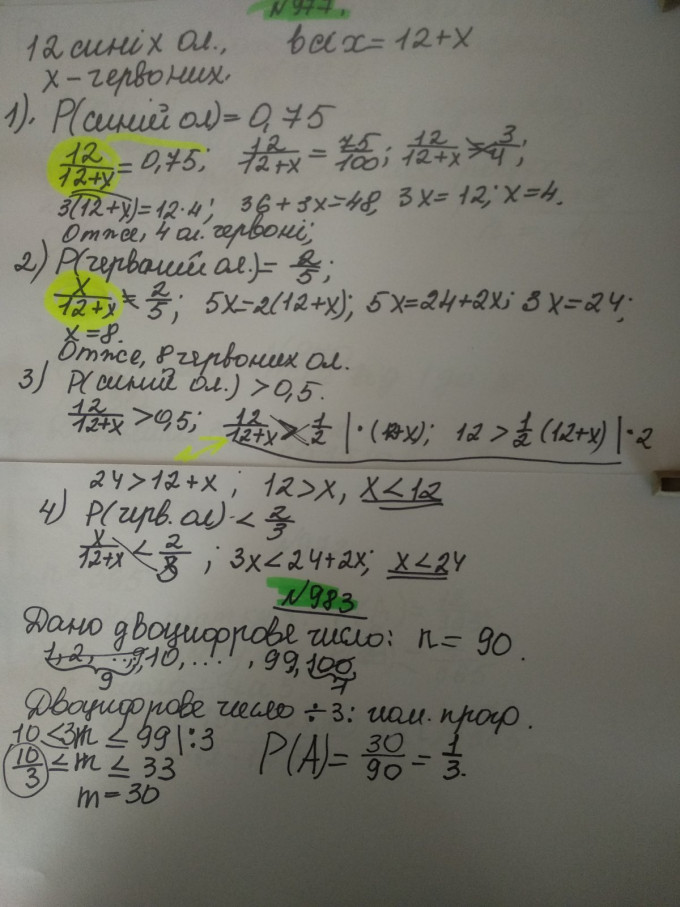 №977.
12 синіх ол., всіх = 12+x
x - червоних.
1). P(синій ол) = 0,75
12/(12+x) = 0,75; 12/(12+x) = 75/100; 12/(12+x) = 3/4;
3(12+x)=12·4; 36+3x=48, 3x=12; x=4.
Отже, 4 ол. червоні;
2) P(червоний ол.) = 2/5;
x/(12+x) = 2/5; 5x=2(12+x); 5x=24+2x; 3x=24;
x=8.
Отже, 8 червоних ол.
3) P(синий ол.) > 0,5.
12/(12+x) > 0,5; 12/(12+x) > 1/2 | · (12+x); 12 > 1/2 (12+x) | · 2
24 > 12+x; 12 > x, x < 12
4) P(черв. ол) < 2/3
x/(12+x) < 2/3; 3x < 24+2x; x < 24
№983
Дано двоцифрове число: n = 90.
1, 2, ..., 9, 10, ...., 99, 100,
9 1
Двоцифрове число ÷ 3:
10 ≤ 3m ≤ 99 | :3 P(A) = 30/90 = 1/3.
10/3 ≤ m ≤ 33
m = 30